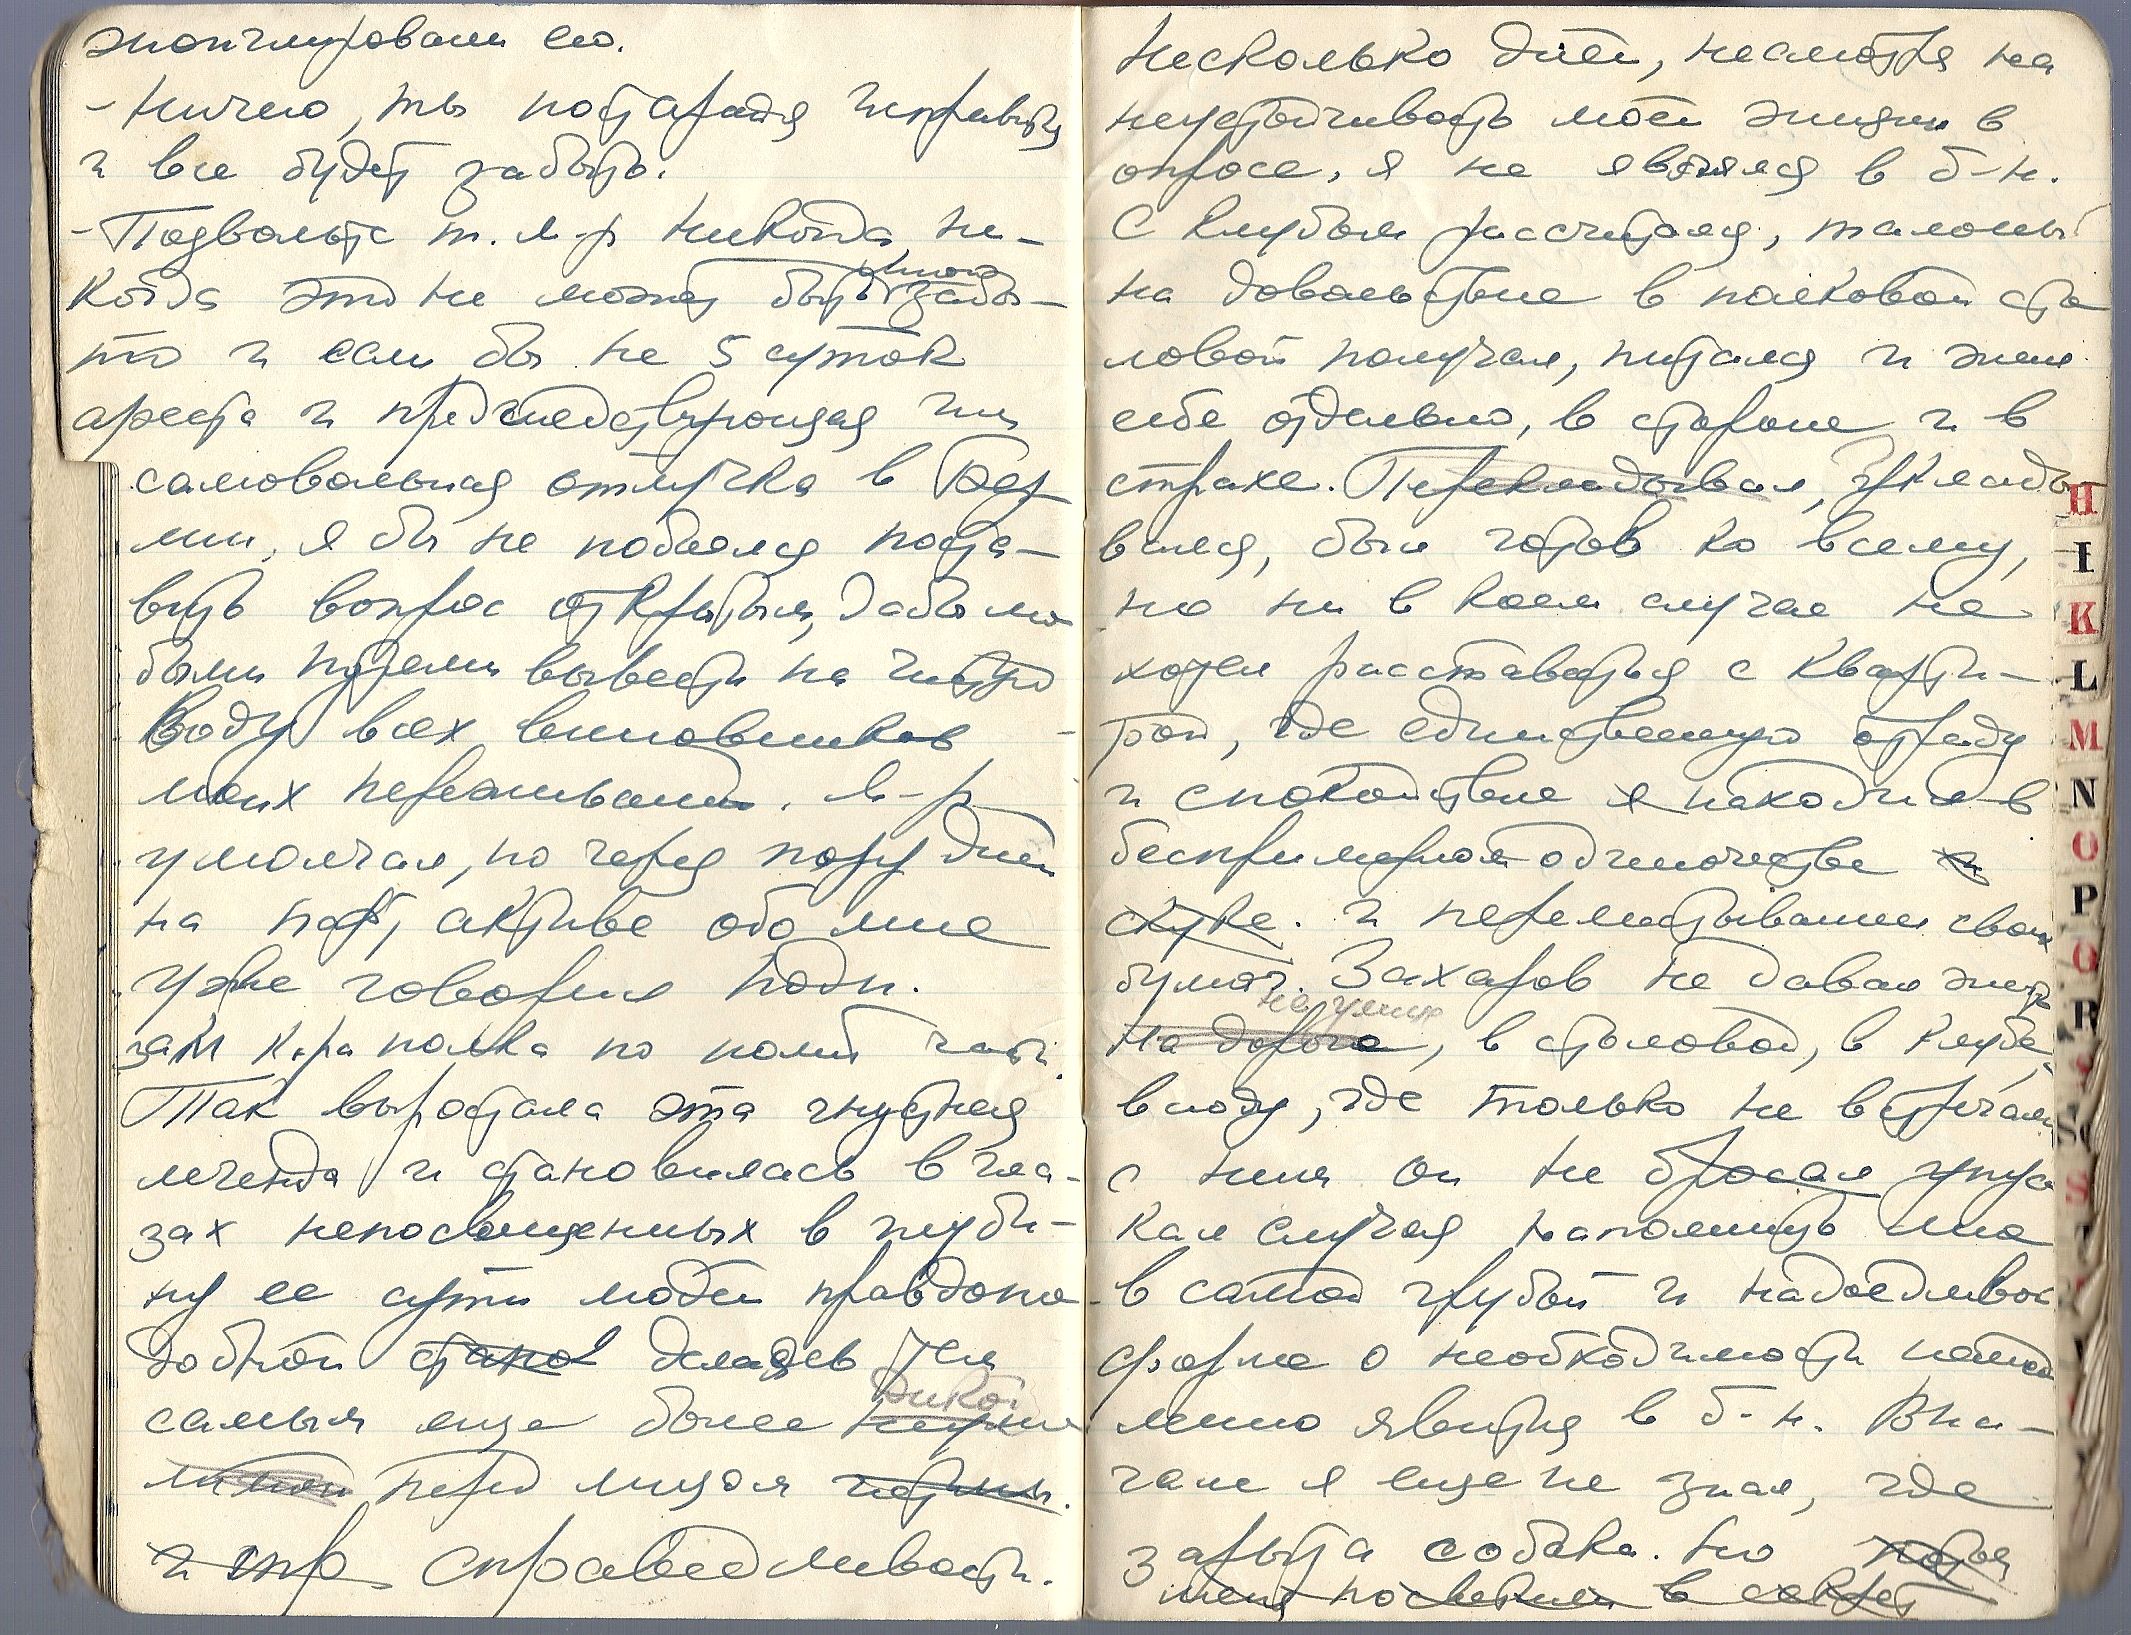 - Ничего, ты постарайся исправиться
и все будет забыто.
- Позвольте т. м-р никогда, ни-
когда это не может быть мною забы-
то и если бы не 5 суток
ареста и предшедствующая им
самовольная отлучка в Бер
лин, я бы не побоялся поста-
вить вопрос открытым, дабы лю
быми путями вывести на чистую
воду всех виновников
моих переживаний. М-р
умолчал, но через пару дней
на парт, активе обо мне
уже говорил подп.
зам к-ра полка по полит части.
Так вырастала эта гнусная
легенда и становилась в гла-
зах непосвященных в глуби-
ну ее сути людей правдопо
добной станов делаясь тем
дикой
самым еще более
перед лицом истины.
и спр справедливости.
Несколько дней, несмотря на
неустойчивость моей жизни в
опросе, я не являлся в б-н.
С клубом рассчитался, талоны
на довольствие в полковой сто
ловой получал, питался и жил
себе отдельно, в стороне и в
страхе. Перекладывал, укладыВ
вался, был готов ко всему,
но ни в коем случае не
хотел расставаться с кварти-
рой, где единственную отраду
и спокойствие я находил в
беспримерном одиночестве и
скуке. и перелистывании своих
бумаг. Захаров не давал жить
на улице
на дороге, в столовой, в клубе,
всюду, где только не встречался
с ним он не бросал упус
кал случая напомнить мне
в самой грубой и надоедливой
форме о необходимости немед
ленно явиться в б-н. Вна-
чале я еще не знал, где
зарыта собака. Но потом
меня посвятили в секрет
H
I
K
L
M
N
O
P
Q
R
S